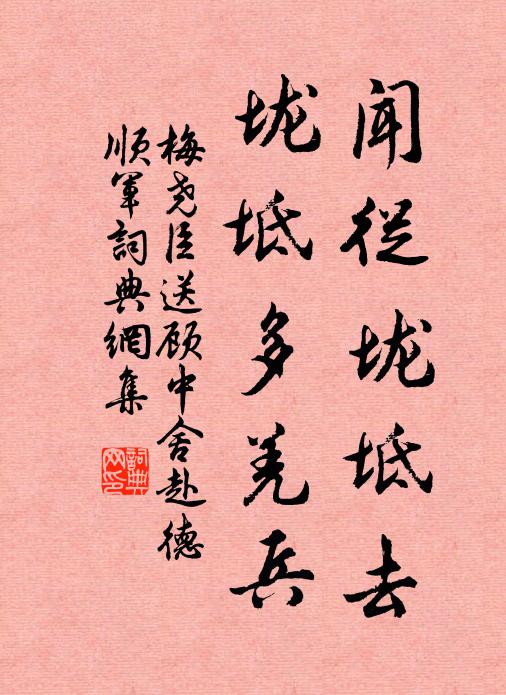 闻从垅坻去
垅坻多羌兵
梅尧臣送顾中舍赴德
顺军词典網集
詞典
网印